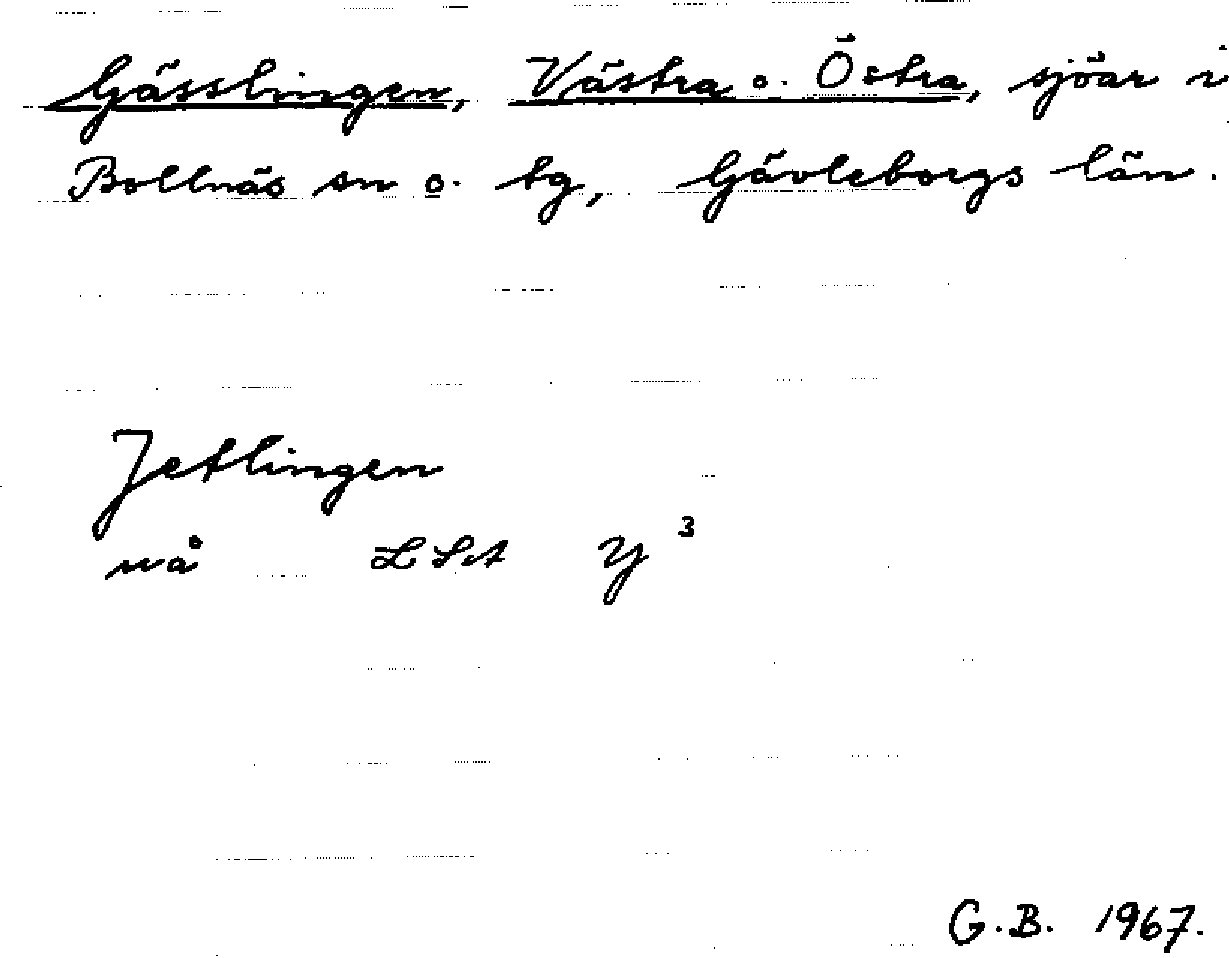 Gässlingen, Västra o. Östra, sjöar i
Bollnäs sn o. tg, Gävleborgs län.
Jetlingen
nå LSA Y 3
G.B. 1967.